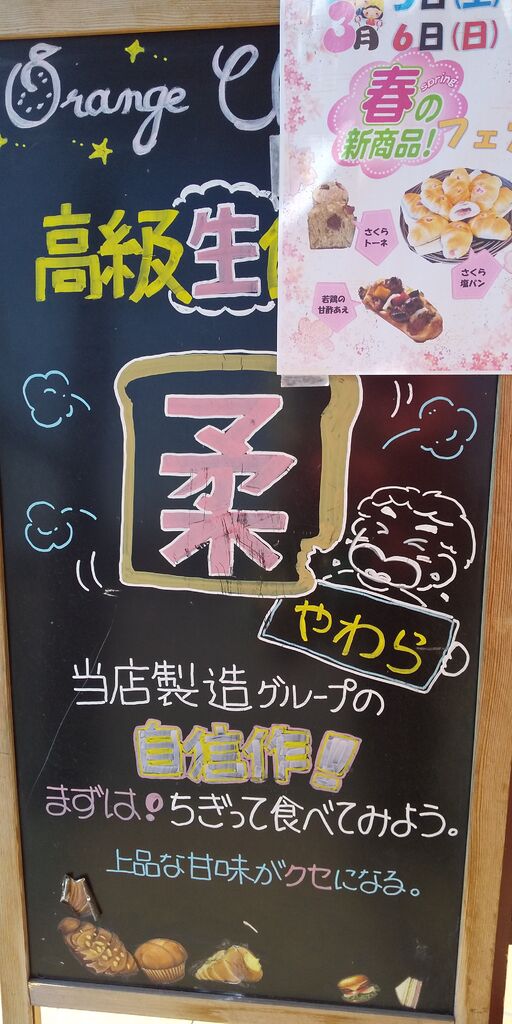 Orange
3月 5日(土)
6日(日)
spring
春の
新商品!フェ
さくら
トーネ
さくら
塩パン
若鶏の
甘酢あえ
高級生
柔
やわら
当店製造グループの
自信作!
まずは!ちぎって食べてみよう。
上品な甘味がクセになる。